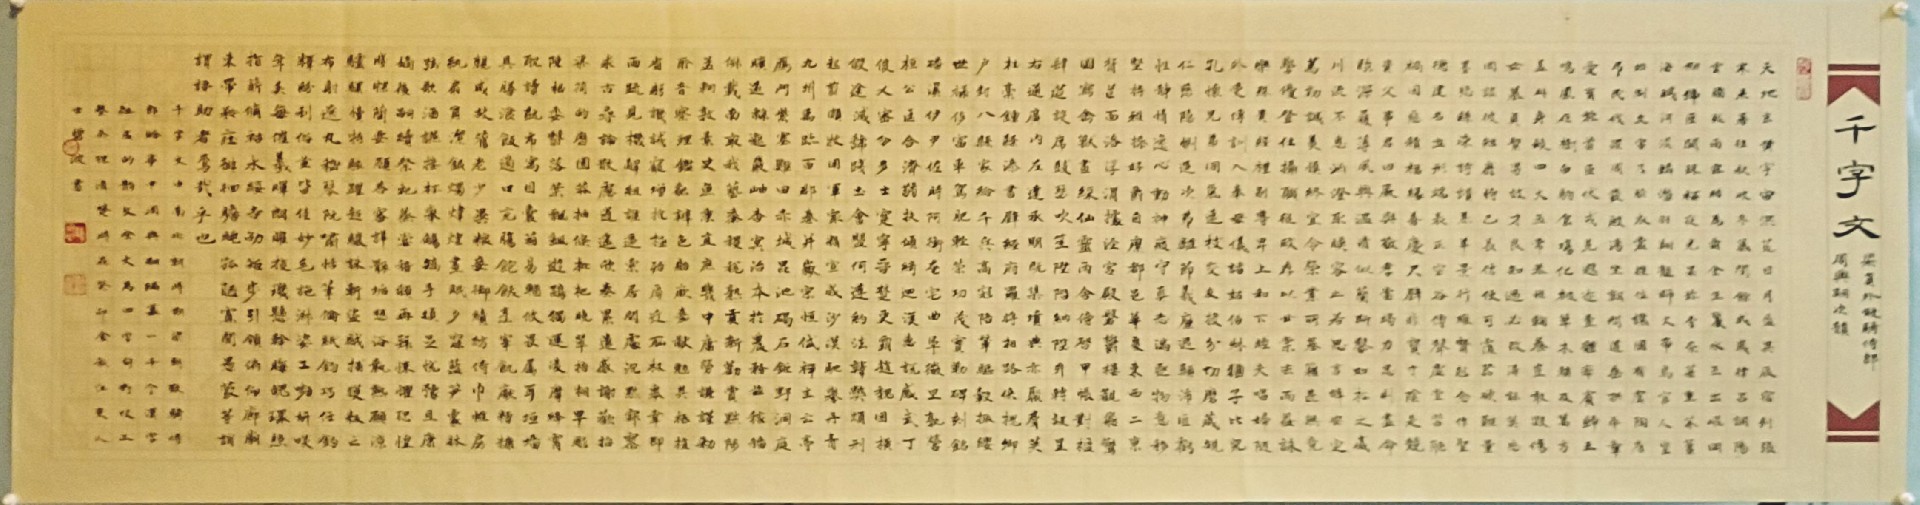 千字文
梁員外散騎侍郎
周興嗣次韻
天地玄黃宇宙洪荒日月盈昃辰宿列張
寒來暑往秋收冬藏閏餘成歲律呂調陽
雲騰致雨露結為霜金生麗水玉出崑岡
劍號巨闕珠稱夜光果珍李柰菜重芥薑
海鹹河淡鱗潛羽翔龍師火帝鳥官人皇
始制文字乃服衣裳推位讓國有虞陶唐
弔民伐罪周發殷湯坐朝問道垂拱平章
愛育黎首臣伏戎羌遐邇壹體率賓歸王
鳴鳳在樹白駒食場化被草木賴及萬方
蓋此身髮四大五常恭惟鞠養豈敢毀傷
女慕貞絜男效才良知過必改得能莫忘
罔談彼短靡恃己長信使可覆器欲難量
墨悲絲染詩讚羔羊景行維賢克念作聖
德建名立形端表正空谷傳聲虛堂習聽
禍因惡積福緣善慶尺璧非寶寸陰是競
資父事君曰嚴與敬孝當竭力忠則盡命
臨深履薄夙興溫凊似蘭斯馨如松之盛
川流不息淵澄取映容止若思言辭安定
篤初誠美慎終宜令榮業所基籍甚無竟
學優登仕攝職從政存以甘棠去而益詠
樂殊貴賤禮別尊卑上和下睦夫唱婦隨
外受傅訓入奉母儀諸姑伯叔猶子比兒
孔懷兄弟同氣連枝交友投分切磨箴規
仁慈隱惻造次弗離節義廉退顛沛匪虧
性靜情逸心動神疲守真志滿逐物意移
堅持雅操好爵自縻都邑華夏東西二京
背邙面洛浮渭據涇宮殿盤鬱樓觀飛驚
圖寫禽獸畫綵仙靈丙舍傍啟甲帳對楹
肆筵設席鼓瑟吹笙陞階納陛弁轉疑星
右通廣內左達承明既集墳典亦聚群英
杜稾鍾隸漆書壁經府羅將相路俠槐卿
戶封八縣家給千兵高冠陪輦驅轂振纓
世祿侈富車駕肥輕策功茂實勒碑刻銘
磻溪伊尹佐時阿衡奄宅曲阜微旦孰營
桓公匡合濟弱扶傾綺迴漢惠說感武丁
俊乂密勿多士寔寧晉楚更霸趙魏困橫
假途滅虢踐土會盟何遵約法韓弊煩刑
起翦頗牧用軍最精宣威沙漠馳譽丹青
九州禹跡百郡秦并嶽宗恒岱禪主云亭
雁門紫塞雞田赤城昆池碣石鉅野洞庭
曠遠緜邈巖岫杳冥治本於農務茲稼穡
俶載南畝我藝黍稷稅熟貢新勸賞黜陟
孟軻敦素史魚秉直庶幾中庸勞謙謹勑
聆音察理鑑貌辨色貽厥嘉猷勉其祗植
省躬譏誡寵增抗極殆辱近恥林皋幸即
兩疏見機解組誰逼索居閒處沉默寂寥
求古尋論散慮逍遙欣奏累遣慼謝歡招
渠荷的歷園莽抽條枇杷晚翠梧桐早彫
陳根委翳落葉飄颻遊鵾獨運淩摩絳霄
耽讀翫市寓目囊箱易輶攸畏屬耳垣墻
具膳湌飯適口充腸飽飫烹宰飢厭糟糠
親戚故舊老少異糧妾御績紡侍巾帷房
紈扇員潔銀燭煒煌晝眠夕寐藍筍象床
弦歌酒讌接杯舉觴矯手頓足悅豫且康
嫡後嗣續祭祀蒸嘗稽顙再拜悚懼恐惶
牋牒簡要顧答審詳骸垢想浴執熱願涼
驢騾犢特駭躍超驤誅斬賊盜捕獲叛亡
布射遼丸嵇琴阮嘯恬筆倫紙鈞巧任釣
釋紛利俗並皆佳妙毛施淑姿工顰妍笑
年矢每催羲暉朗曜璇璣懸斡晦魄環照
指薪修祜永綏吉劭矩步引領俯仰廊廟
束帶矜莊徘徊瞻眺孤陋寡聞愚蒙等誚
謂語助者焉哉乎也
千字文由南北朝時期梁朝散騎侍
郎給事中周興嗣編纂一千个漢字
組成的韻文全文為四字句對仗工
整條理清楚時在癸卯金秋江夏人
士碧波書